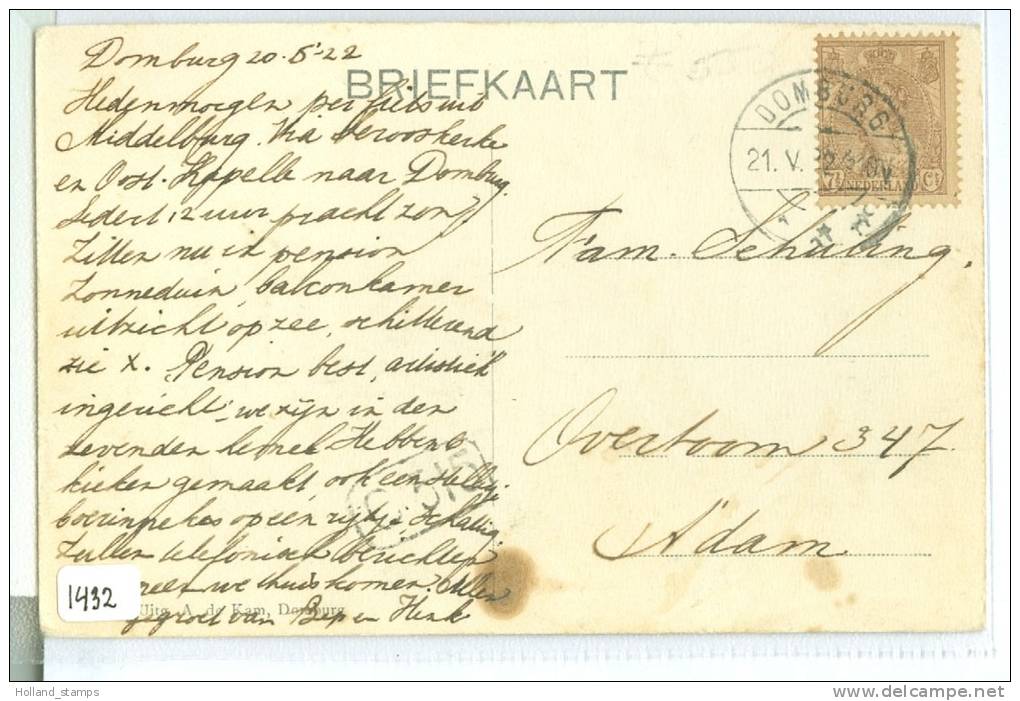 Domburg 20.5'22
BRIEFKAART
Hedenmorgen per fiets uit
Middelburg. Via Serooskerke
en Oost-Kapelle naar Domburg.
Sedert 12 uur pracht zon,
Zitten nu in pension
Zonneduin, balconkamer
uitzicht op zee, schitterend
zie X. Pension best, artistiek
ingericht, we zijn in den
zevenden hemel. Hebben
kieken gemaakt, ook een stelletje
boerinnekes op een rijtje, schattig.
Zullen telefonisch berichten
we thuiskomen. Allen
gegroet van Bep en Henk
Uitg. A. de Kam, Domburg
1432
DOMBURG
21. V. 22
7½ NEDERLAND Ct
Fam. Schuling.
Overtoom 347
A'dam
Holland_stamps
http://www.delcampe.net